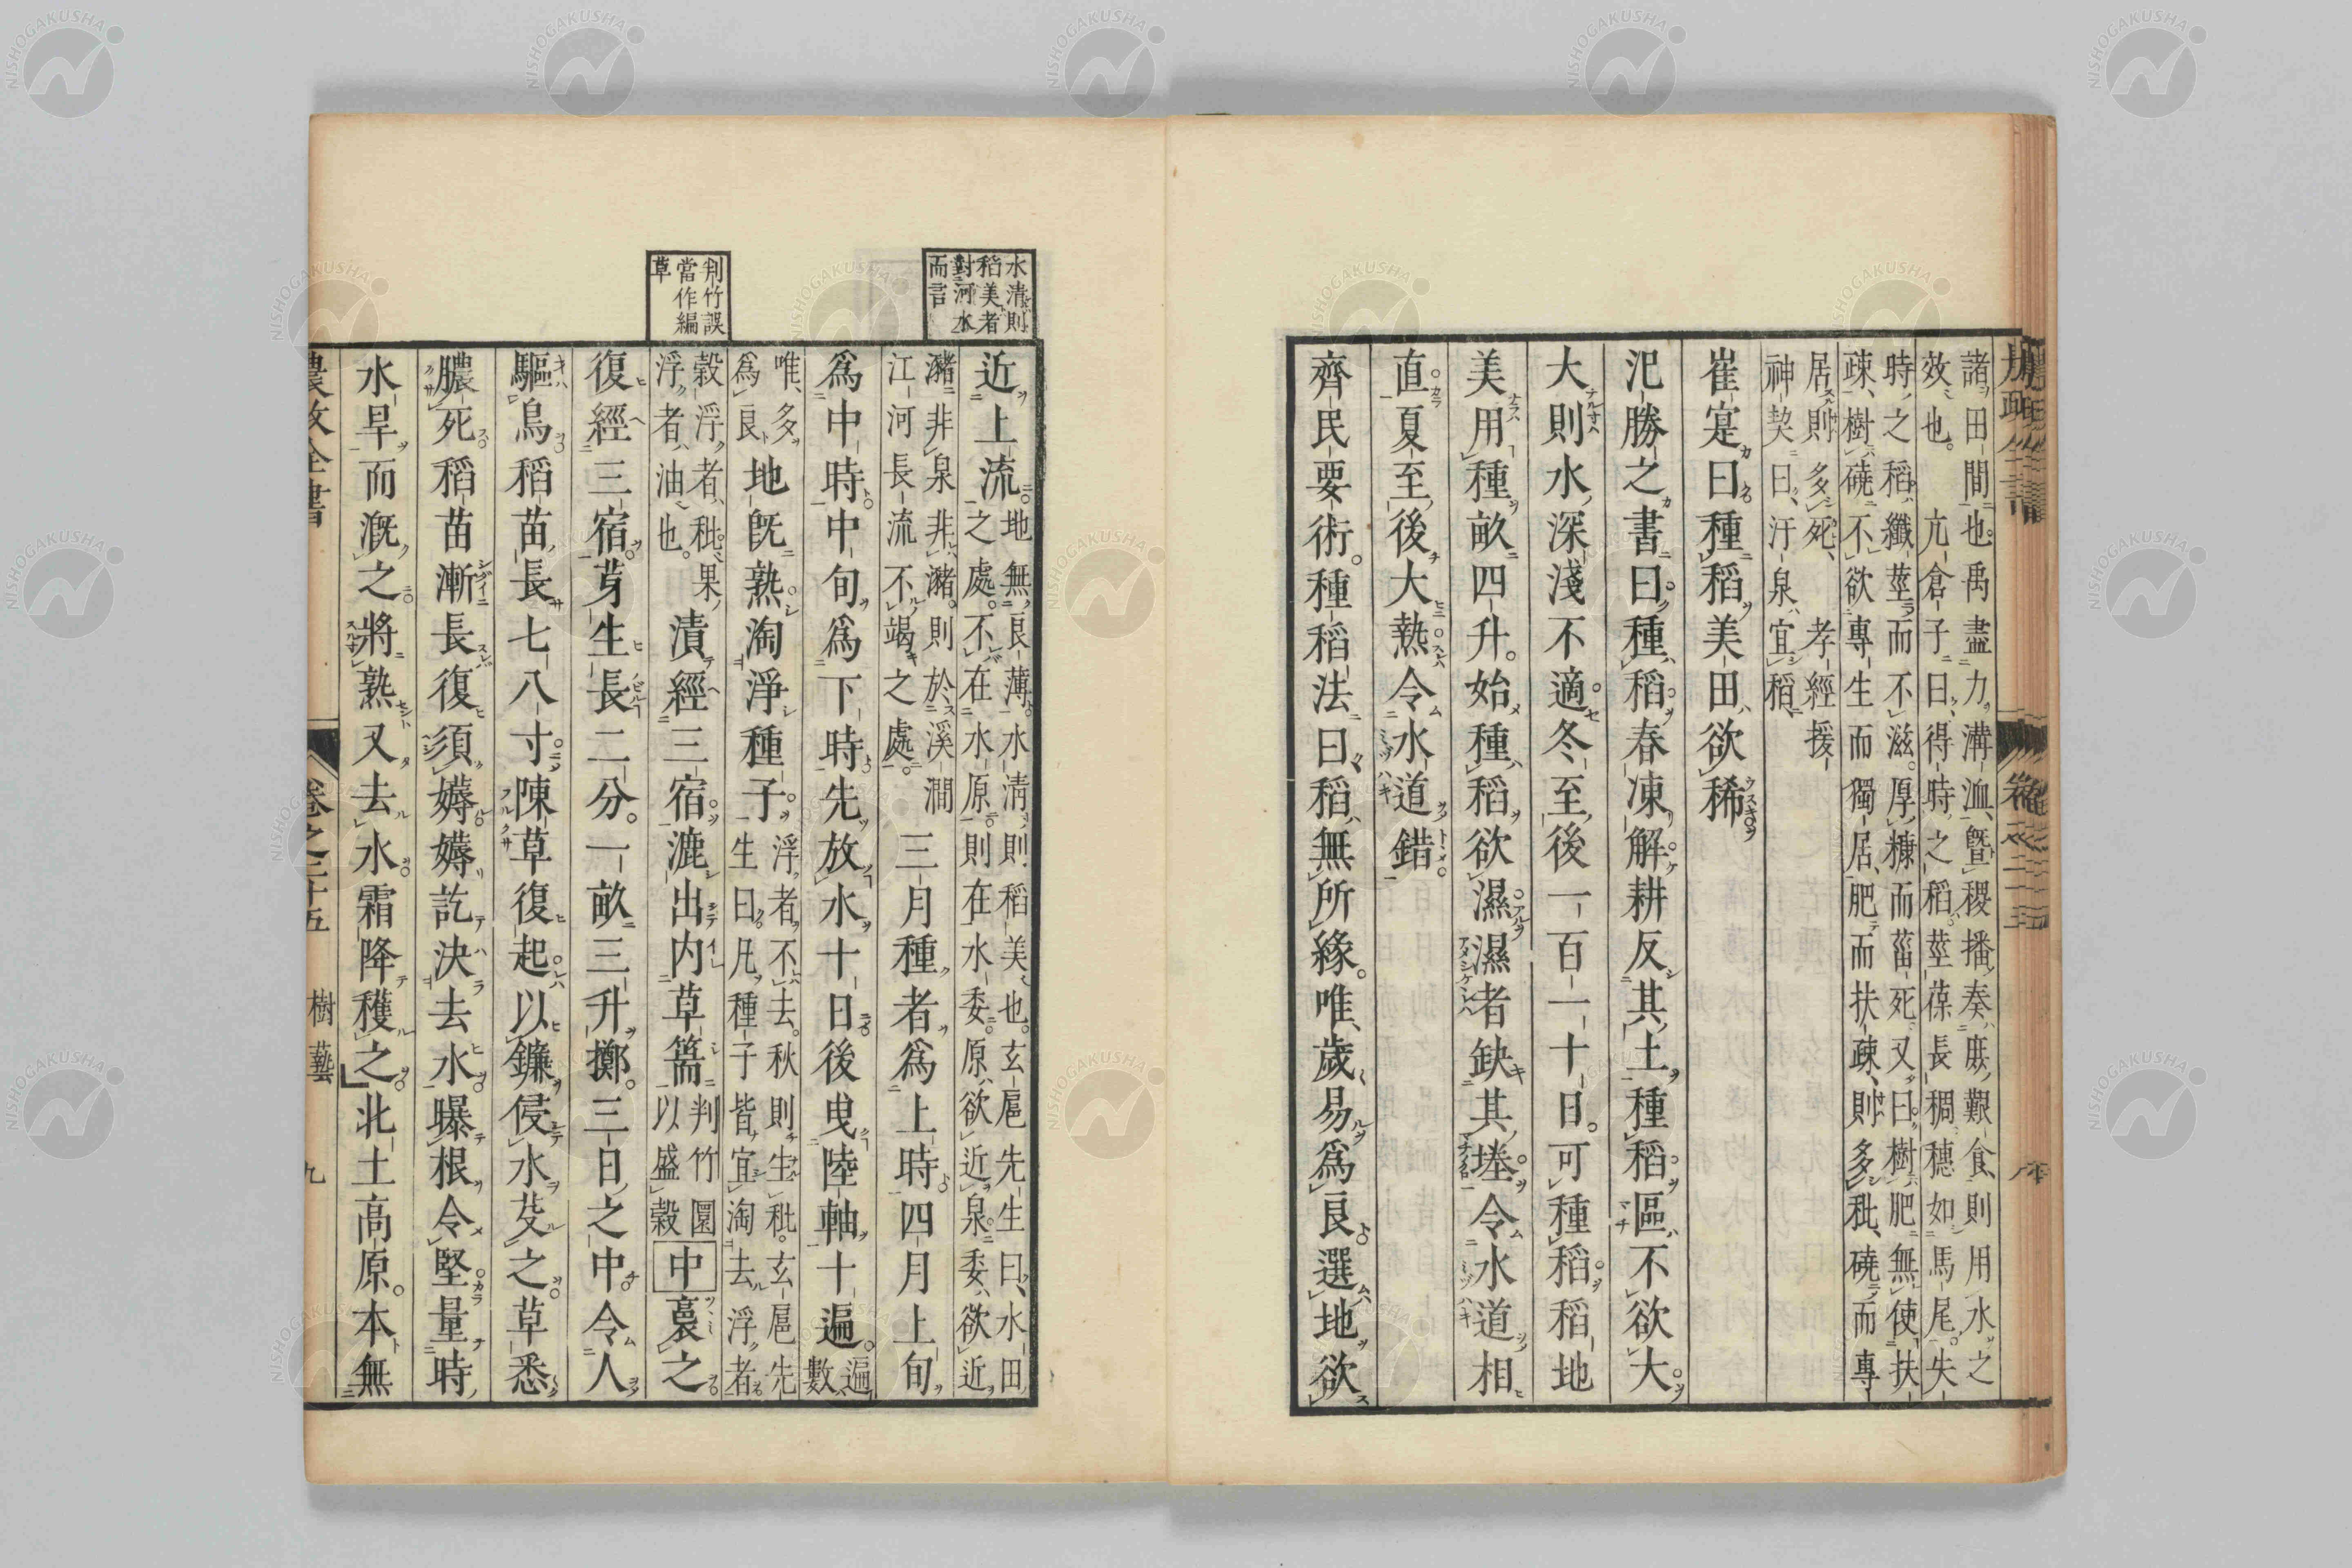 諸田間也。禹盡力溝洫、曁稷播奏庶艱食、則用水之
效也。亢倉子曰、得時之稻、莖葆長稠、穗如馬尾、失
時之稻、纖莖而不滋。厚糠而菑死、又曰、樹肥無使扶
疎、樹磽不欲專生而獨居、肥而扶疎、則多秕、磽而專
居則多死、孝經援
神契曰、汙泉宜稻、
崔寔曰種稻美田欲稀
氾勝之書曰種稻春凍解耕反其土種稻區不欲大
大則水深淺不適冬至後一百一十日可種稻稻地
美用種畝四升。始種稻欲濕濕者缺其塍令水道相
直夏至後大熱令水道錯
齊民要術。種稻法曰稻無所緣。唯歲易爲良選地欲
水清則
稻美者
對河水
而言
近上流地無良薄水清則稻美也。玄扈先生曰、水田
之處。不在水原則在水委。原欲近泉委欲近
瀦非泉非瀦。則於溪澗
江河長流不竭之處。三月種者爲上時四月上旬
爲中時中旬爲下時先放水十日後曳陸軸十遍。遍
數
唯多
爲良地旣熟淘淨種子。浮者不去。秋則生秕。玄扈先
生曰凡種子皆宜淘去浮者
判竹誤
當作編
草
穀浮者、秕果
浮者油也。漬經三宿漉出内草篅判竹圌
以盛穀中裛之
復經三宿芽生長二分。一畝三升擲。三日之中令人
驅鳥稻苗長七八寸陳草復起以鐮侵水芟之草悉
膿死稻苗漸長復須薅薅訖決去水曝根令堅量時
水旱而漑之將熟又去水霜降穫之北土高原。本無
農政全書 卷之二十五 樹藝 九